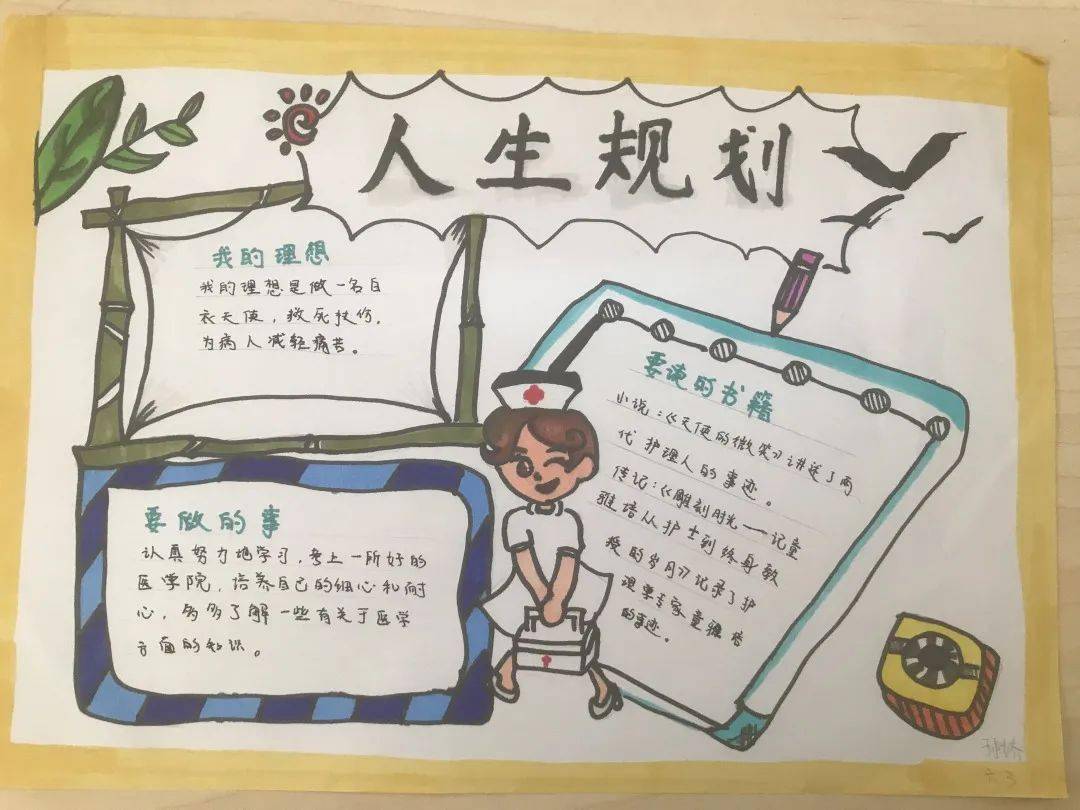 人生规划
我的理想
我的理想是做一名白
衣天使，救死扶伤，
为病人减轻痛苦。
要做的事
认真努力地学习，考上一所好的
医学院，培养自己的细心和耐
心，多多了解一些有关于医学
方面的知识。
要读的书籍
小说：《天使的微笑》讲述了两
代护理人的事迹。
传记：《雕刻时光——记童
雅培从护士到终身教
授的岁月》记录了护
理学专家童雅培
的事迹。
六3